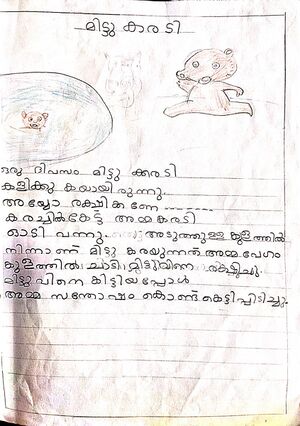 മിട്ടു കരടി
ഒരു ദിപസം മിട്ടു ക്കരടി
കളിക്കു കയായി രുന്നു.
അയ്യോ രക്ഷിക്കണേ
കരച്ചിൽകേട്ട് അമ്മകരടി
ഓടി വന്നു. അടുത്തുള്ള കുളത്തിൽ
നിന്നാണ് മിട്ടു കരയുന്നത് അമ്മ വേഗം
കുളത്തിൽ ചാടി മിട്ടുവിനെ രക്ഷിച്ചു.
മിട്ടുപിനെ കിട്ടിയപ്പോൾ
അമ്മ സന്തോഷം കൊണ്ട് കെട്ടിപ്പിടിച്ചു.